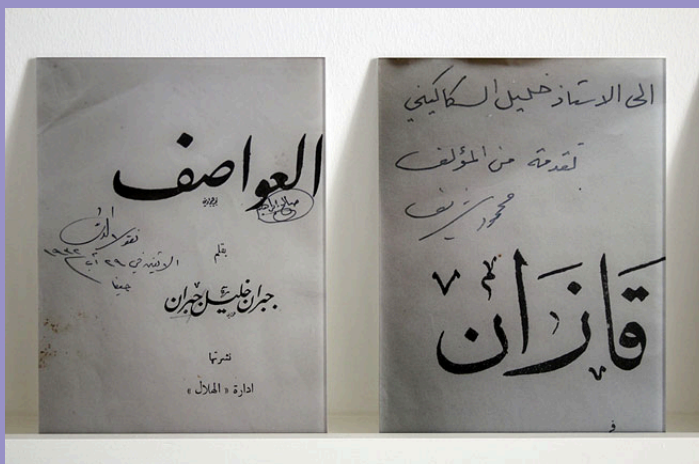 العواصف
بقلم
جبران خليل جبران
نشرتها
ادارة « الهلال »
الاثنين في ٢٩ آب
حيفا
الى الاستاذ خليل السكاكيني
تقدمة من المؤلف
محمود شريف
قازان